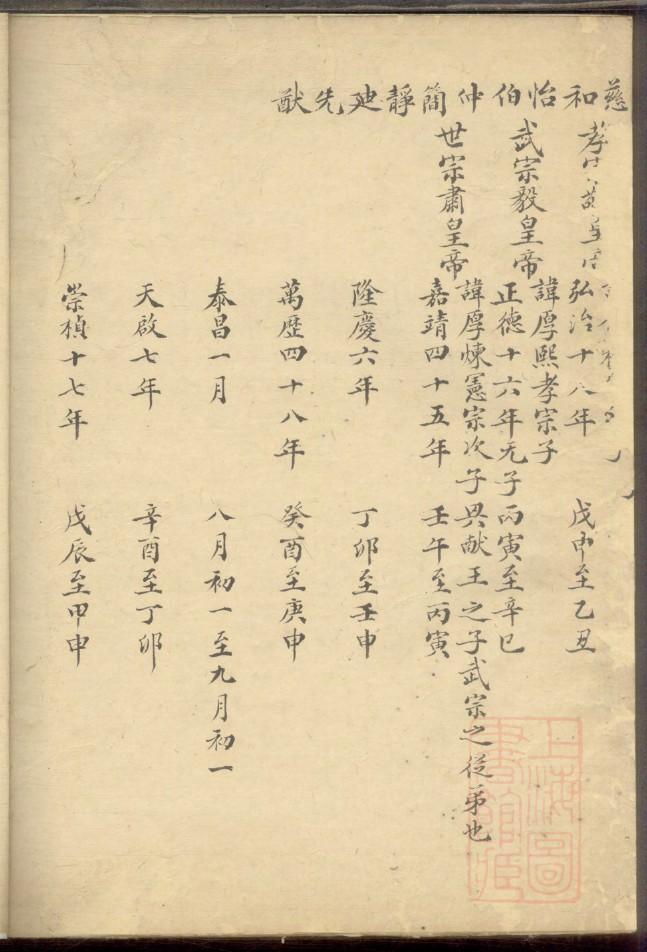 慈和怡伯仲簡靜迪先猷
孝皇
弘治十八年 戊申至乙丑
武宗毅皇帝 諱厚熙孝宗子
正德十六年无子 丙寅至辛巳
世宗肅皇帝 諱厚煉憲宗次子興献王之子武宗之從弟也
嘉靖四十五年 壬午至丙寅
隆慶六年 丁卯至壬申
萬歷四十八年 癸酉至庚申
泰昌一月 八月初一至九月初一
天啟七年 辛酉至丁卯
崇楨十七年 戊辰至甲申
上海圖書館藏